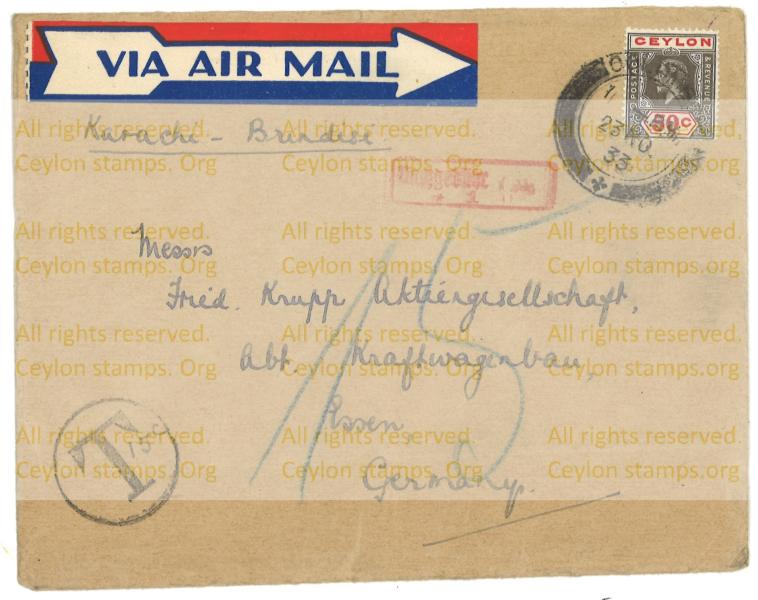 VIA AIR MAIL
CEYLON
POSTAGE
& REVENUE
50 C
23 NO
33
Karachi - Brindisi
Messrs
Fried. Krupp Aktiengesellschaft,
Abt. Kraftwagenbau,
Essen
Germany.
15
T
15 C
All rights reserved. All rights reserved. All rights reserved.
Ceylon stamps. Org Ceylon stamps. Org Ceylon stamps. Org
All rights reserved. All rights reserved. All rights reserved.
Ceylon stamps. Org Ceylon stamps. Org Ceylon stamps. Org
All rights reserved. All rights reserved. All rights reserved.
Ceylon stamps. Org Ceylon stamps. Org Ceylon stamps. Org
All rights reserved. All rights reserved. All rights reserved.
Ceylon stamps. Org Ceylon stamps. Org Ceylon stamps. Org